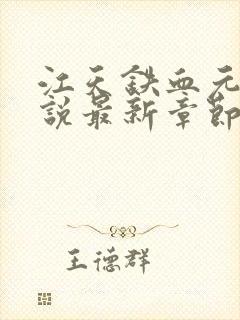 江天鉄血元
說最新章節
王德群